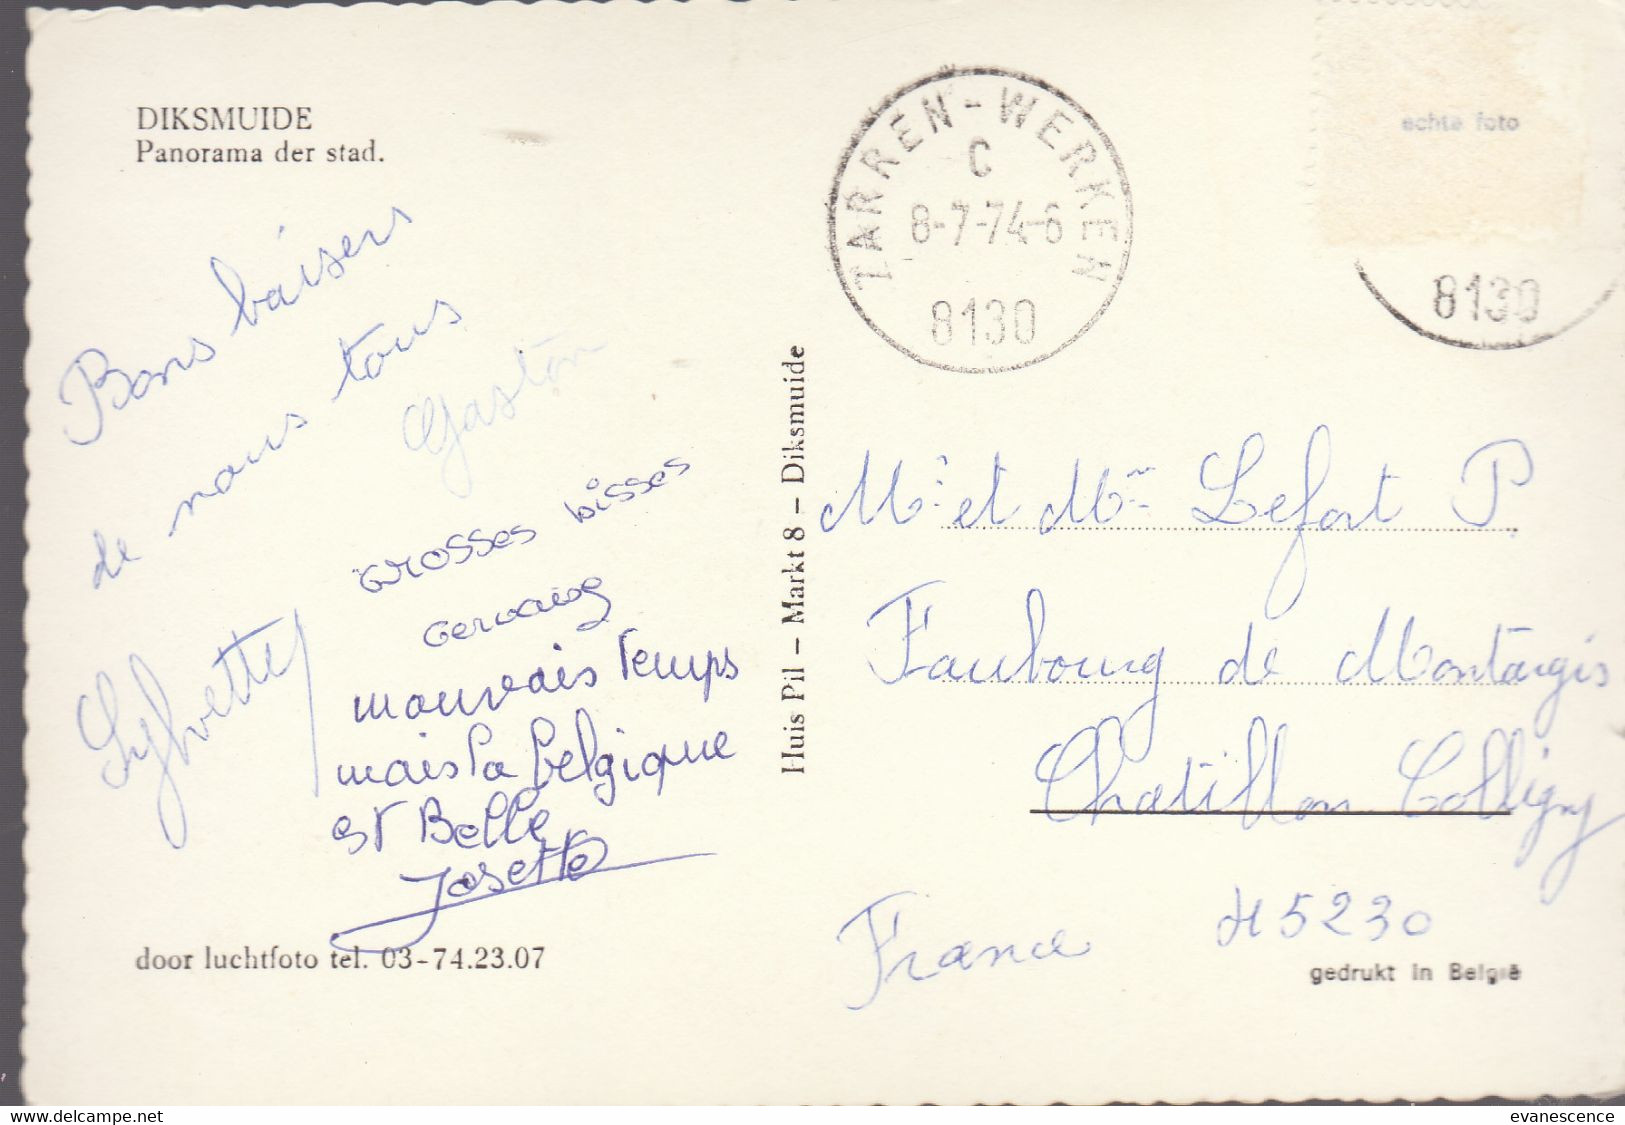 DIKSMUIDE
Panorama der stad.
Bons baisers
de nous tous
Gaston
Sylvette
Grosses bisses
mauvais Temps
mais la Belgique
est Belle
Josette
door luchtfoto tel. 03-74.23.07
Huis Pil – Markt 8 – Diksmuide
ZARREN-WERKEN
C
8-7-74-6
8130
echte foto
8130
Mr et Mme Lefort P
Faubourg de Montargis
Chatillon Colligny
France 45230
gedrukt in België
www.delcampe.net
evanescence